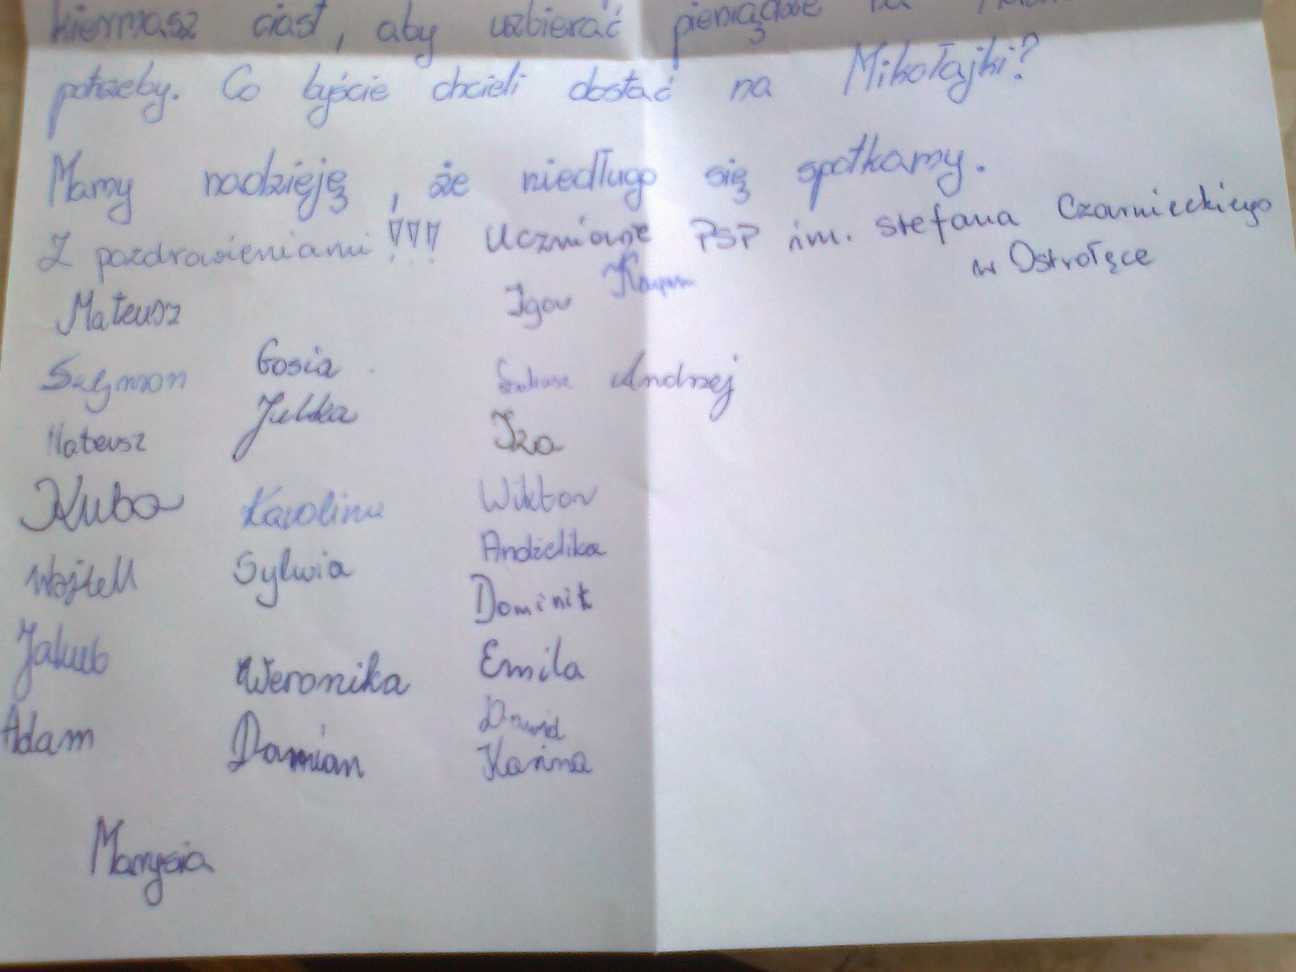 kiermasz ciast, aby uzbierać pieniądze na
potrzeby. Co byście chcieli dostać na Mikołajki?
Mamy nadzieję, że niedługo się spotkamy.
Z pozdrowieniami!!! Uczniowie PSP im. Stefana Czarnieckiego
w Ostrołęce
Mateusz Igor
Szymon Gosia Andrzej
Mateusz Julka Iza
Kuba Karolina Wiktor
Wojtek Sylwia Andżelika
Dominik
Jakub Weronika Emila
Adam Damian Dawid
Karina
Marysia